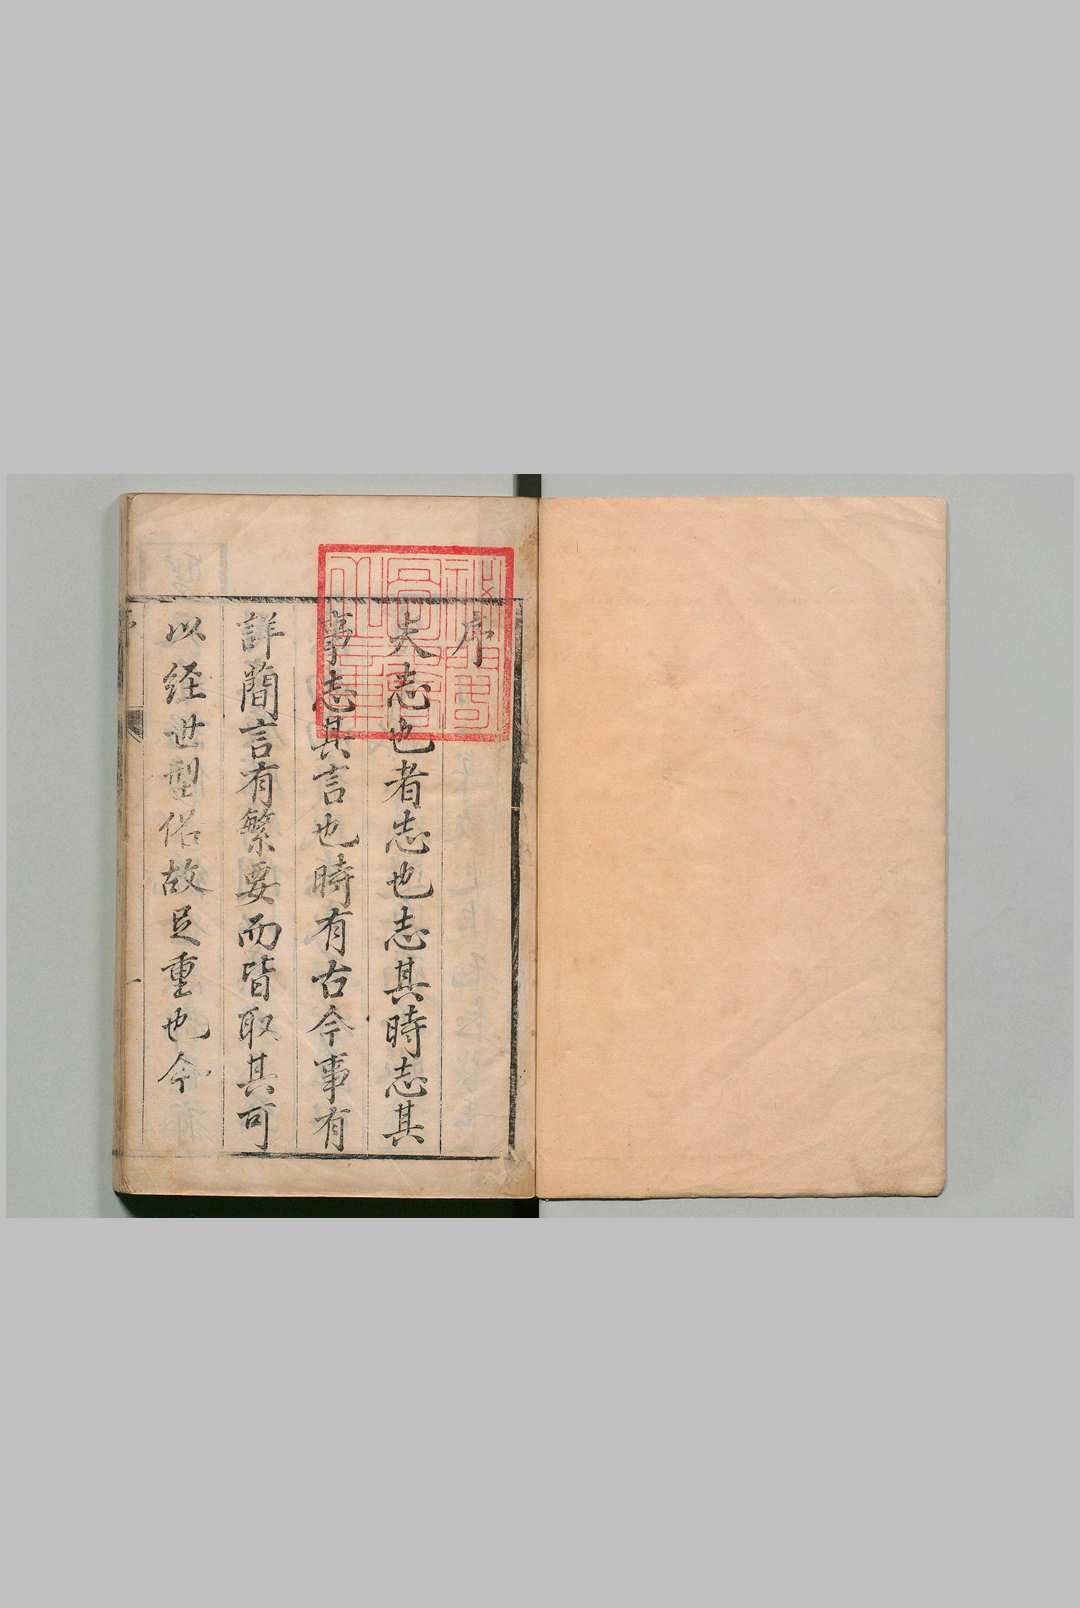 序
夫志也者志也志其時志其
事志其言也時有古今事有
詳蕳言有繁要而皆取其可
以経世型俗故足重也今